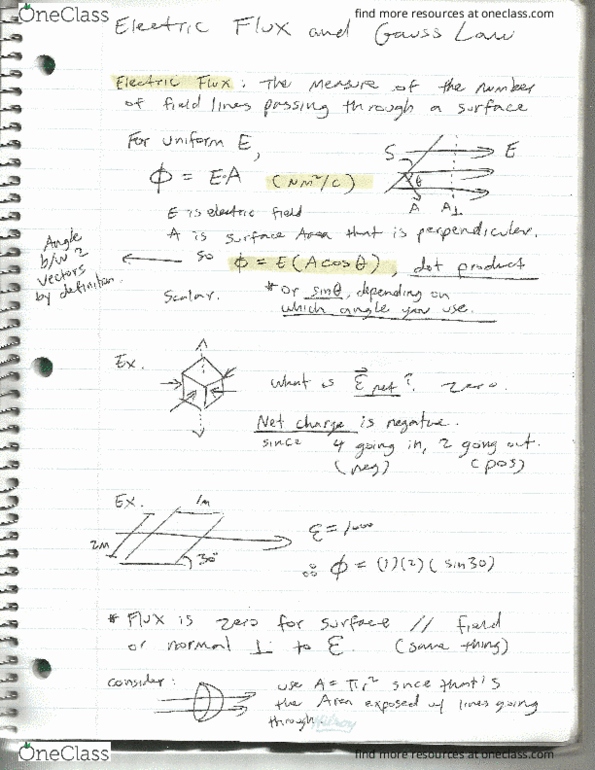 OneClass
find more resources at oneclass.com
Electric Flux and Gauss Law
Electric Flux: The measure of the number
of field lines passing through a surface
For uniform E,
S E
ϕ = EA (Nm²/C)
θ
A A⊥
E is electric field
A is surface Area that is perpendicular.
Angle
b/w 2
vectors
by definition.
so ϕ = E(A cosθ), dot product
Scalar. * Or sinθ, depending on
which angle you use.
Ex.
What is Ɛ net? zero.
Net charge is negative.
since 4 going in, 2 going out.
(neg) (pos)
Ex. 1m
2m
30°
Ɛ = 1000
∴ ϕ = (1)(2)(sin30)
* Flux is zero for surface // field
or normal ⊥ to Ɛ. (same thing)
consider: use A = πr² since that's
the Area exposed w/ lines going
through
OneClass
find more resources at oneclass.com